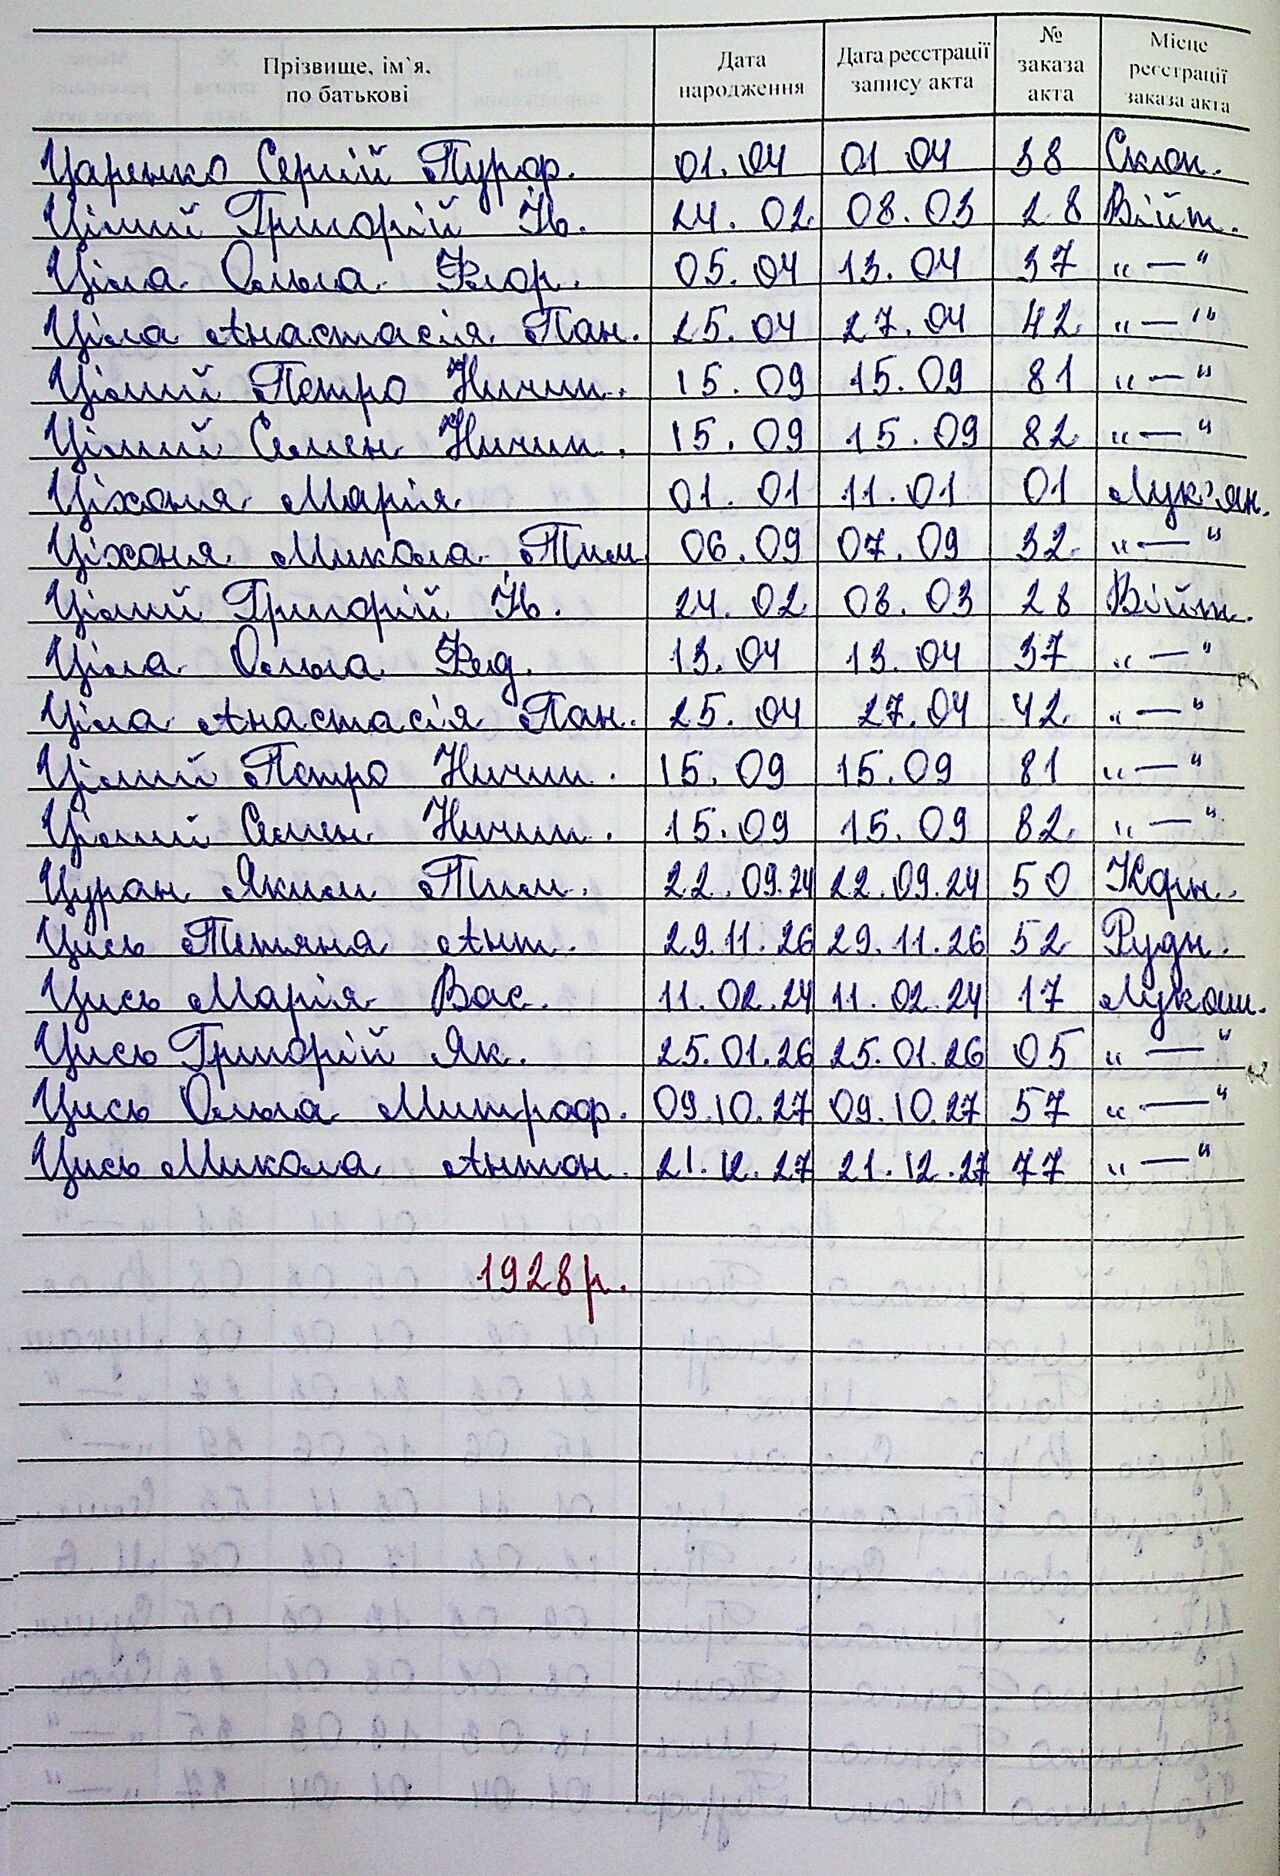 Прізвище, ім`я, по батькові Дата народження Дата реєстрації запису акта № заказа акта Місце реєстрації заказа акта
Царенко Сергій Турор. 01.04 01 04 38 Склоп.
Цілий Григорій Ів. 24.02 08.03 28 Війт.
Ціла Ольга Флор. 05.04 13.04 37 „—"
Ціла Анастасія Пан. 25.04 27.04 42 „—"
Цілий Петро Ничип. 15.09 15.09 81 „—"
Цілий Семен Ничип. 15.09 15.09 82 „—"
Ціхоня Марія 01.01 11.01 01 Лук'ян.
Ціхоня Микола Тим 06.09 07.09 32 „—"
Цілий Григорій Ів. 24.02 08.03 28 Війт.
Ціла Ольга Фед. 13.04 13.04 37 „—"
Ціла Анастасія Пан. 25.04 27.04 42 „—"
Цілий Петро Ничип. 15.09 15.09 81 „—"
Цілий Семен Ничип. 15.09 15.09 82 „—"
Цуран Яким Тим. 22.09.24 22.09.24 50
Цись Тетяна Ант. 29.11.26 29.11.26 52 Рудн.
Цись Марія Вас. 11.02.24 11.02.24 17 Лукаш.
Цись Григорій Як. 25.01.26 25.01.26 05 „—"
Цись Ольга Митроф. 09.10.27 09.10.27 57 „—"
Цись Микола Антон. 21.12.27 21.12.27 77 „—"
1928р.